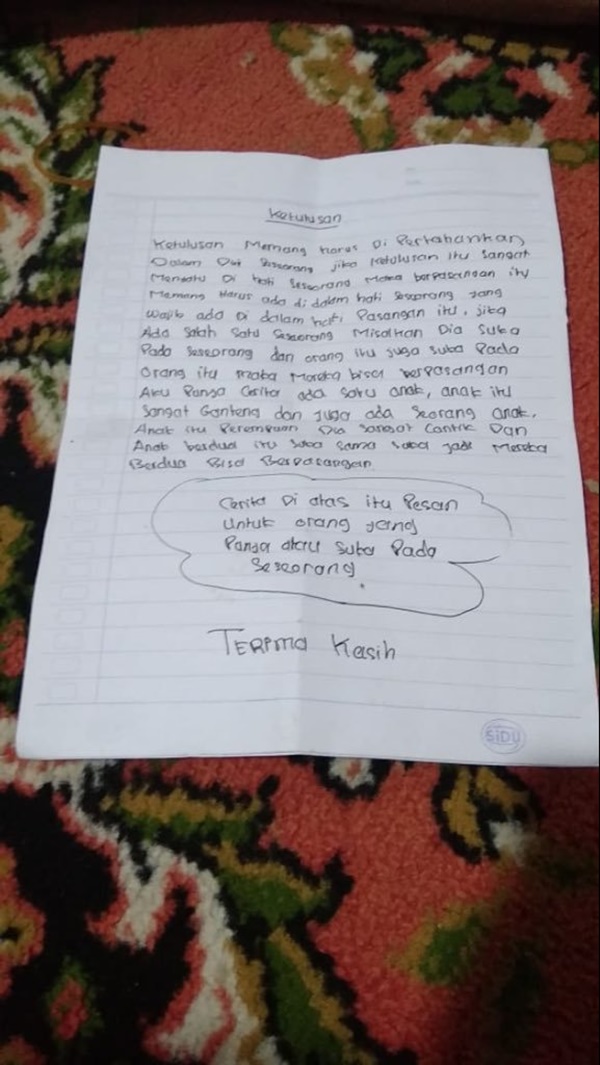 Ketulusan
Ketulusan Memang harus Di Pertahankan
Dalam Diri Seseorang jika Ketulusan Itu Sangat
Menyatu Di hati Seseorang Maka berpasangan itu
Memang Harus ada di dalam hati Seseorang yang
Wajib ada Di dalam hati Pasangan itu, jika
Ada Salah Satu Seseorang Misalkan Dia Suka
Pada Seseorang dan orang itu juga suka Pada
orang itu maka Mereka bisa berpasangan
Aku Punya Cerita ada satu anak, anak itu
Sangat Ganteng dan Juga ada Seorang anak,
Anak itu Perempuan Dia Sangat Cantik Dan
Anak berdua itu Suka Sama Suka jadi Mereka
Berdua Bisa Berpasangan
Cerita Di atas itu Pesan
Untuk orang yang
Punya atau Suka Pada
Seseorang.
TERIMA Kasih
SiDU